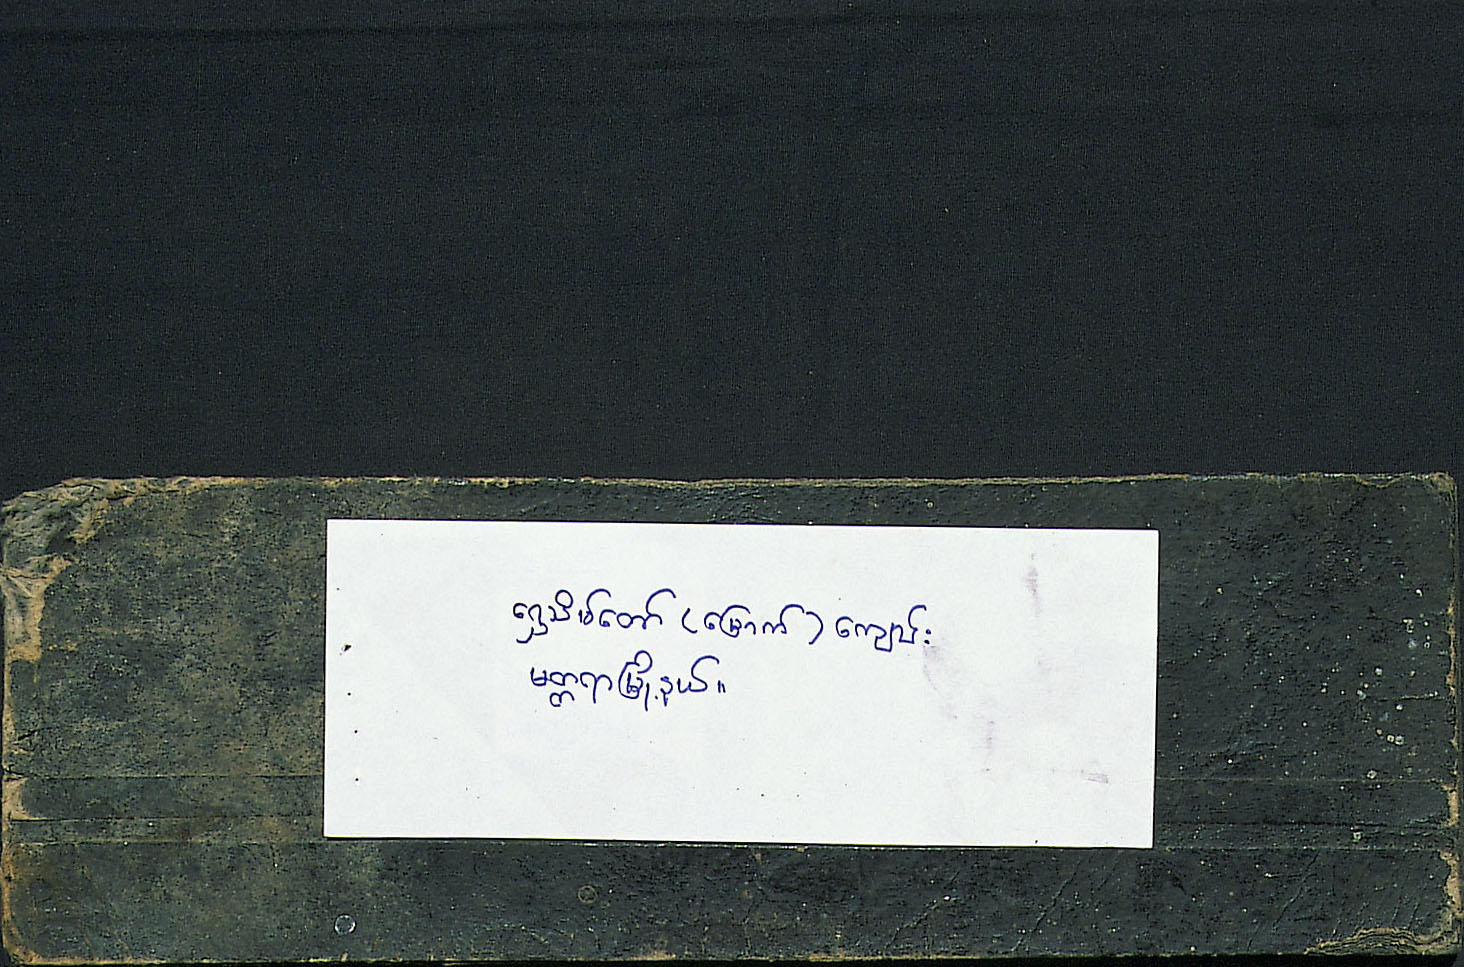 ရွှေသိမ်တော် (မြောက်) ကျောင်း
မတ္တရာမြို့နယ်။